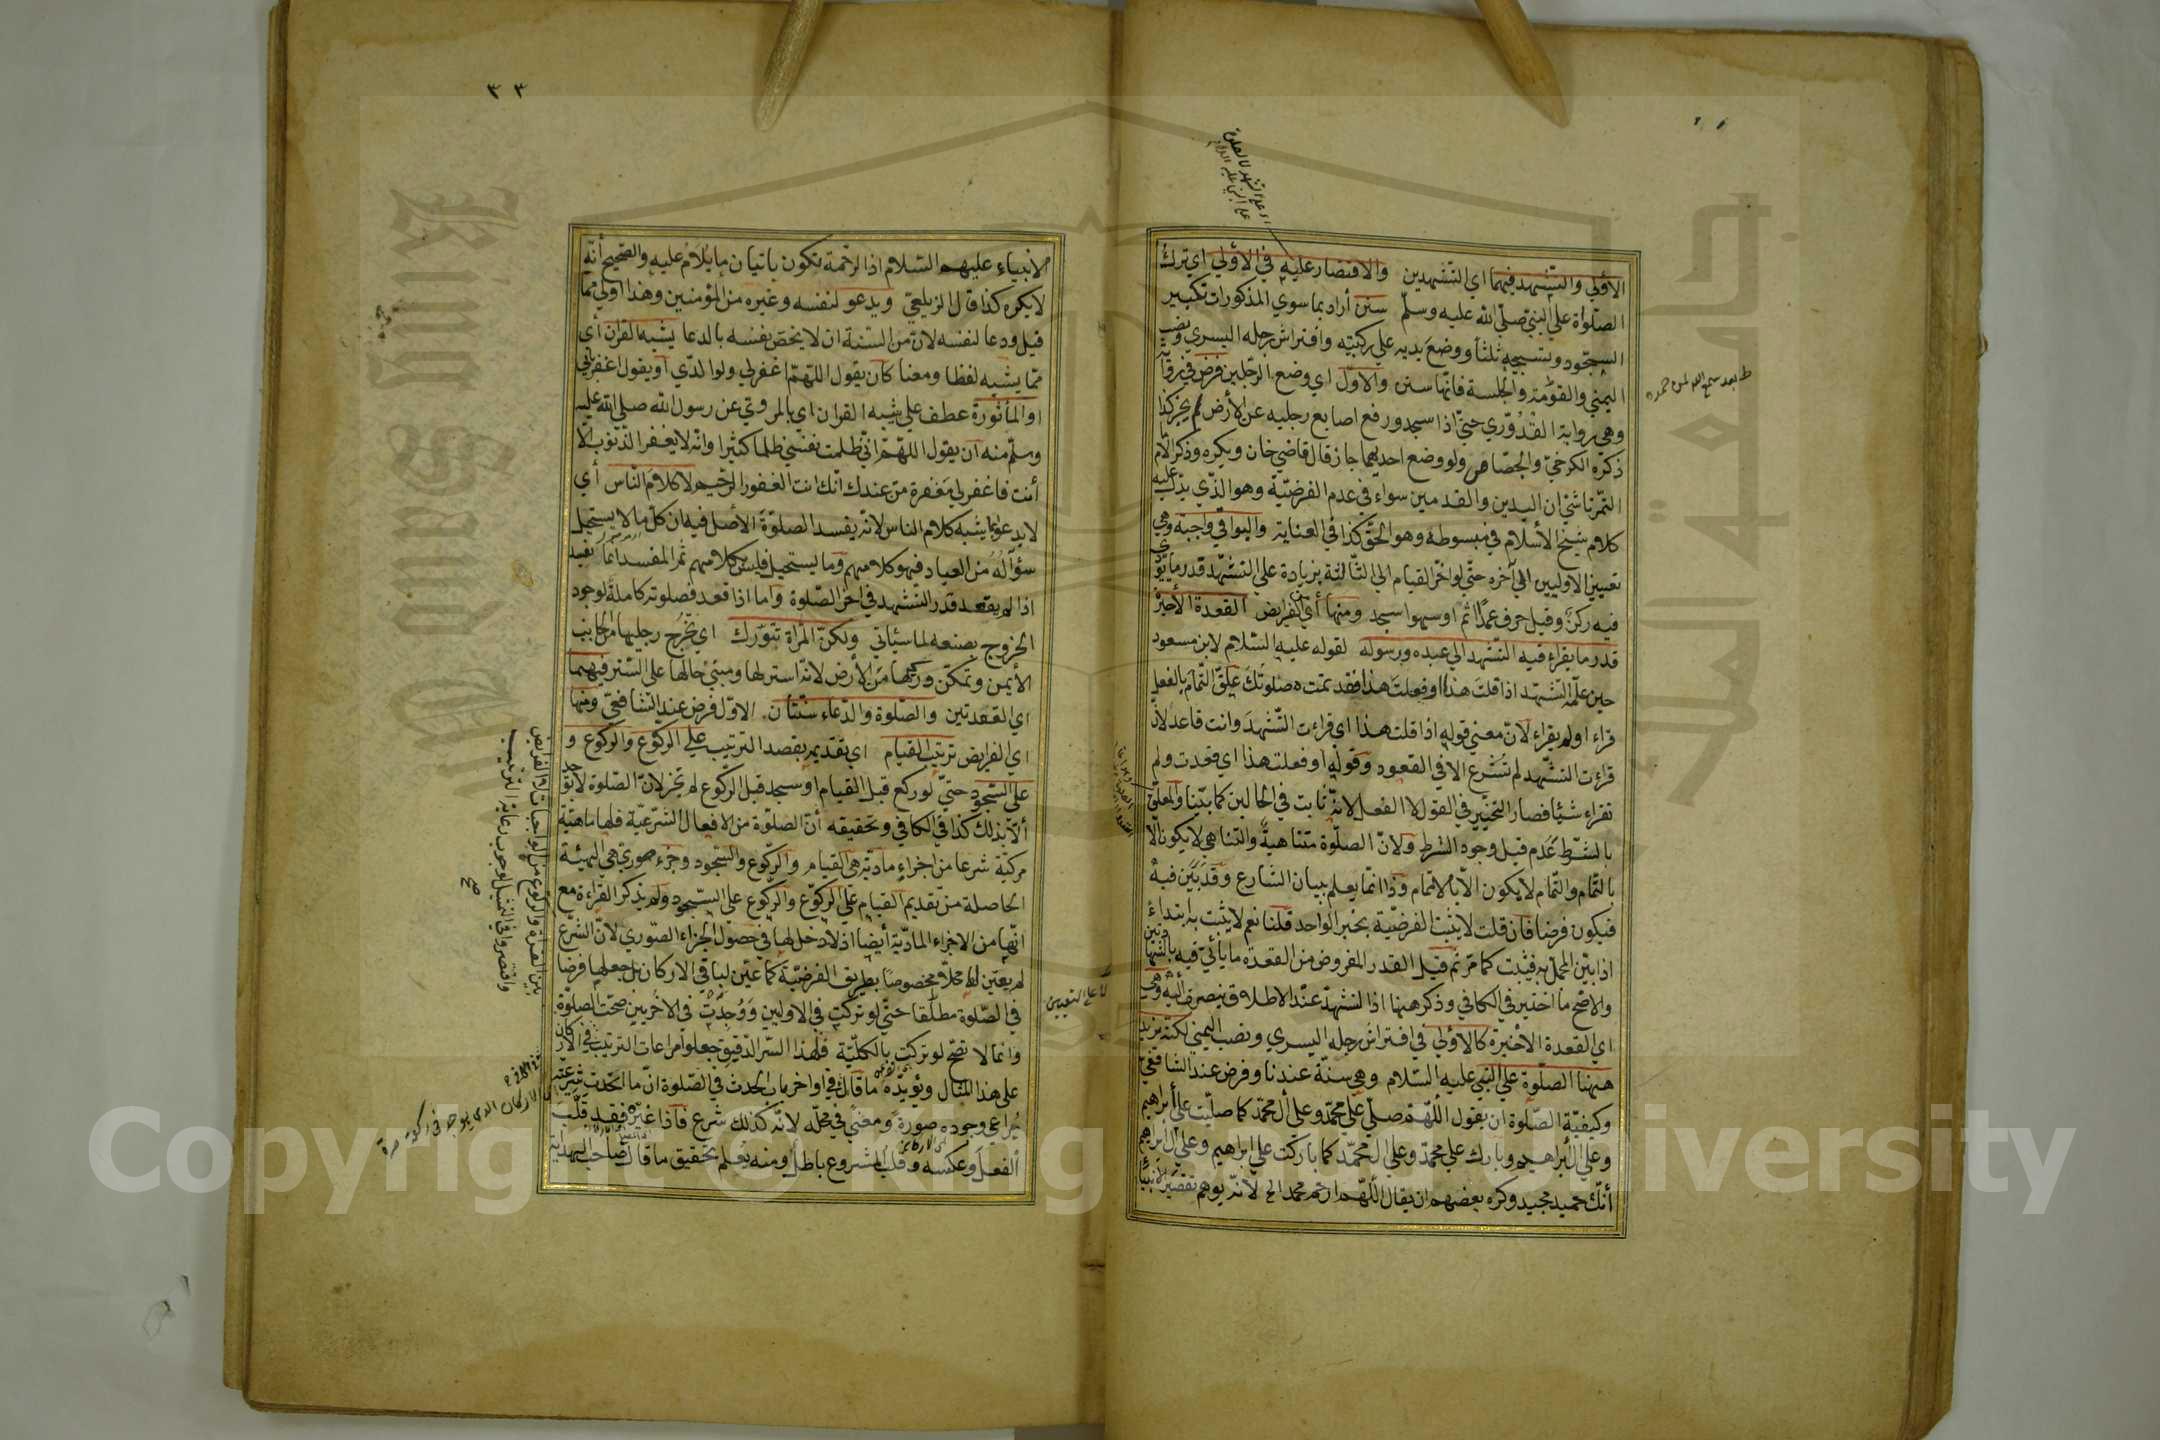 الأولي والتشهد فيهما اي التشهدين والاقتصار عليه في الأولي اي ترك
الصلواة علي النبي صلي الله عليه وسلم سنن أراد بما سوي المذكورات تكبير
السجود وتسبيحه ثلثا ووضع يديه علي ركبتيه وافتراش رجله اليسري ونصب
اليمني والقومة والجلسة فانها سنن والاول اي وضع الرجلين فرض في رواية
وهي رواية القدوري حتي اذا سجد ورفع اصابع رجليه عن الأرض لم يجز كذا
ذكره الكرخي والجصاص ولو وضع احديهما جاز قال قاضي خان ويكره وذكر الامام
التمرتاشي ان اليدين والقدمين سواء في عدم الفرضية وهو الذي يدل عليه
كلام شيخ الأسلام في مبسوطه وهو الحق كذا في العناية والبواقي واجبة وهي
تعيين الاوليين الي آخره حتي لو اخر القيام الي الثالثة بزيادة علي التشهد قدر ما يؤدي
فيه ركن وقيل حرف عمدا اثم او سهوا سجد ومنها أي الفرايض القعدة الأخيرة
قدر ما يقراء فيه التشهد الي عبده ورسوله لقوله عليه السلام لابن مسعود
حين علمه التشهد اذا قلت هذا او فعلت هذا فقد تمت صلوتك علق التمام بالفعل
قراء او لم يقراء لان معني قوله اذا قلت هذا اي قراءت التشهد وانت قاعد لان
قراءت التشهد لم تشرع الا في القعود وقوله او فعلت هذا اي قعدت ولم
تقراء شيئا فصار التخيير في القول لا الفعل لانه ثابت في الحالين كما بينا والمعلق
بالشرط عدم قبل وجود الشرط ولان الصلوة متناهية والتناهي لا يكون الا
بالتمام والتمام لا يكون الا بالاتمام وذا انما يعلم ببيان الشارع وقد بين فيه
فيكون فرضا فان قلت لا يثبت الفرضية بخبر الواحد قلنا نعم لا يثبت به ابتداء
اذا بين المجمل به فيثبت كما مر ثم قيل القدر المفروض من القعدة ما يأتي فيه بالشهادتين
والاصح ما اختير في الكافي وذكر ههنا اذ التشهد عند الاطلاق ينصرف اليه وهي
اي القعدة الأخيرة كالأولي في افتراش رجله اليسري ونصب اليمني لكنه يزيد
ههنا الصلوة علي النبي عليه السلام وهي سنة عندنا وفرض عند الشافعي
وكيفية الصلوة ان يقول اللهم صلي علي محمد وعلي أل محمد كما صليت علي أبراهيم
وعلي ال أبراهيم وبارك علي محمد وعلي ال محمد كما باركت علي ابراهيم وعلي ال ابراهيم
أنك حميد مجيد وكره بعضهم ان يقال اللهم ارحم محمدا الخ لانه يوهم تقصير الأنبياء
اي علي التشهد لا الصلوة
علي النبي عليه السلام
ط بعد سمع الله لمن حمده
٣٣
الانبياء عليهم السلام اذ الرحمة تكون باتيان ما يلام عليه والصحيح أنه
لا يكره كذا قال الزيلعي ويدعو لنفسه وغيره من المؤمنين وهذا اولي مما
قيل ودعا لنفسه لان من السنة ان لا يخص نفسه بالدعا يشبه القران أي
مما يشبه لفظا ومعنا كان يقول اللهم اغفرلي ولوالدي أو يقول اغفرلي
او المأثورة عطف علي يشبه القران اي بالمروي عن رسول الله صلي الله عليه
وسلم منه ان يقول اللهم اني ظلمت نفسي ظلما كثيرا وانه لا يغفر الذنوب الا
أنت فاغفرلي مغفرة من عندك انك انت الغفور الرحيم لا كلام الناس أي
لا يدعو بما يشبه كلام الناس لانه يفسد الصلوة الأصل فيه ان كل ما لا يستحيل
سؤاله من العباد فهو كلامهم وما يستحيل فليس كلامهم ثم المفسد انما يفسد
اذا لم يقعد قدر التشهد في اخر الصلوة واما اذا قعد فصلوته كاملة لوجود
الخروج بصنعه لما سيئاتي ولكن المرأة تتورك اي تخرج رجليها من الجانب
الأيمن وتمكن وركيها من الأرض لانه استر لها ومبني حالها علي الستر فيهما
اي القعدتين والصلوة والدعاء سنتان الاول فرض عند الشافعي ومنها
اي الفرايض ترتيب القيام اي تقديمه بقصد الترتيب علي الركوع والركوع و
علي السجود حتي لو ركع قبل القيام او سجد قبل الركوع لم تجز لان الصلوة لا توجد
ألا بذلك كذا في الكافي وتحقيقه أن الصلوة من الافعال الشرعية فلها ماهية
مركبة شرعا من اجزاء مادية هي القيام والركوع والسجود وجزء صوري هي الهيئة
الحاصلة من تقديم القيام علي الركوع والركوع علي السجود ولم يذكر القراءة مع
انها من الاجزاء المادية أيضا اذ لا دخل لها في حصول الجزاء الصوري لان الشرع
لم يعين لها محلا مخصوصا بطريق الفرضية كما عين لباقي الاركان بل جعلها فرضا
في الصلوة مطلقا حتي لو تركت في الاوليين ووجدت في الاخريين صحت الصلوة
وانما لا تصح لو تركت بالكلية فلهذا السر الدقيق جعلوا مراعات الترتيب في اركان
علي هذا المثال ويؤيده ما قال في اواخر باب الحدث في الصلوة ان ما اتحدت شرعيته
يراعي وجوده صورة ومعني في محله لانه كذلك شرع فاذا غيره فقد قلب
الفعل وعكسه وقلب المشروع باطل ومنه يعلم تحقيق ما قال صاحب الهداية
لا علي التعيين
بين القراءة والركوع من الواجبات لا الفرايض
واقتصروا في التمثيل لوجوب رعاية الترتيب
صح